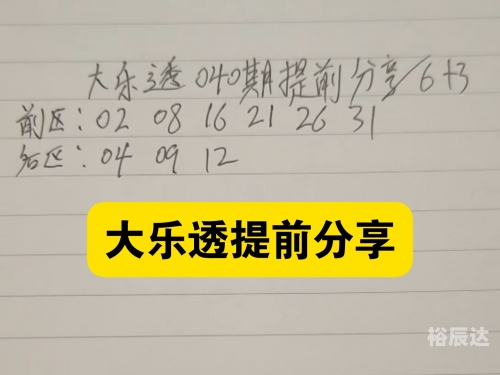 大乐透040期提前分享/6+3
前区:02 08 16 21 26 31
后区:04 09 12
大乐透提前分享
裕辰达